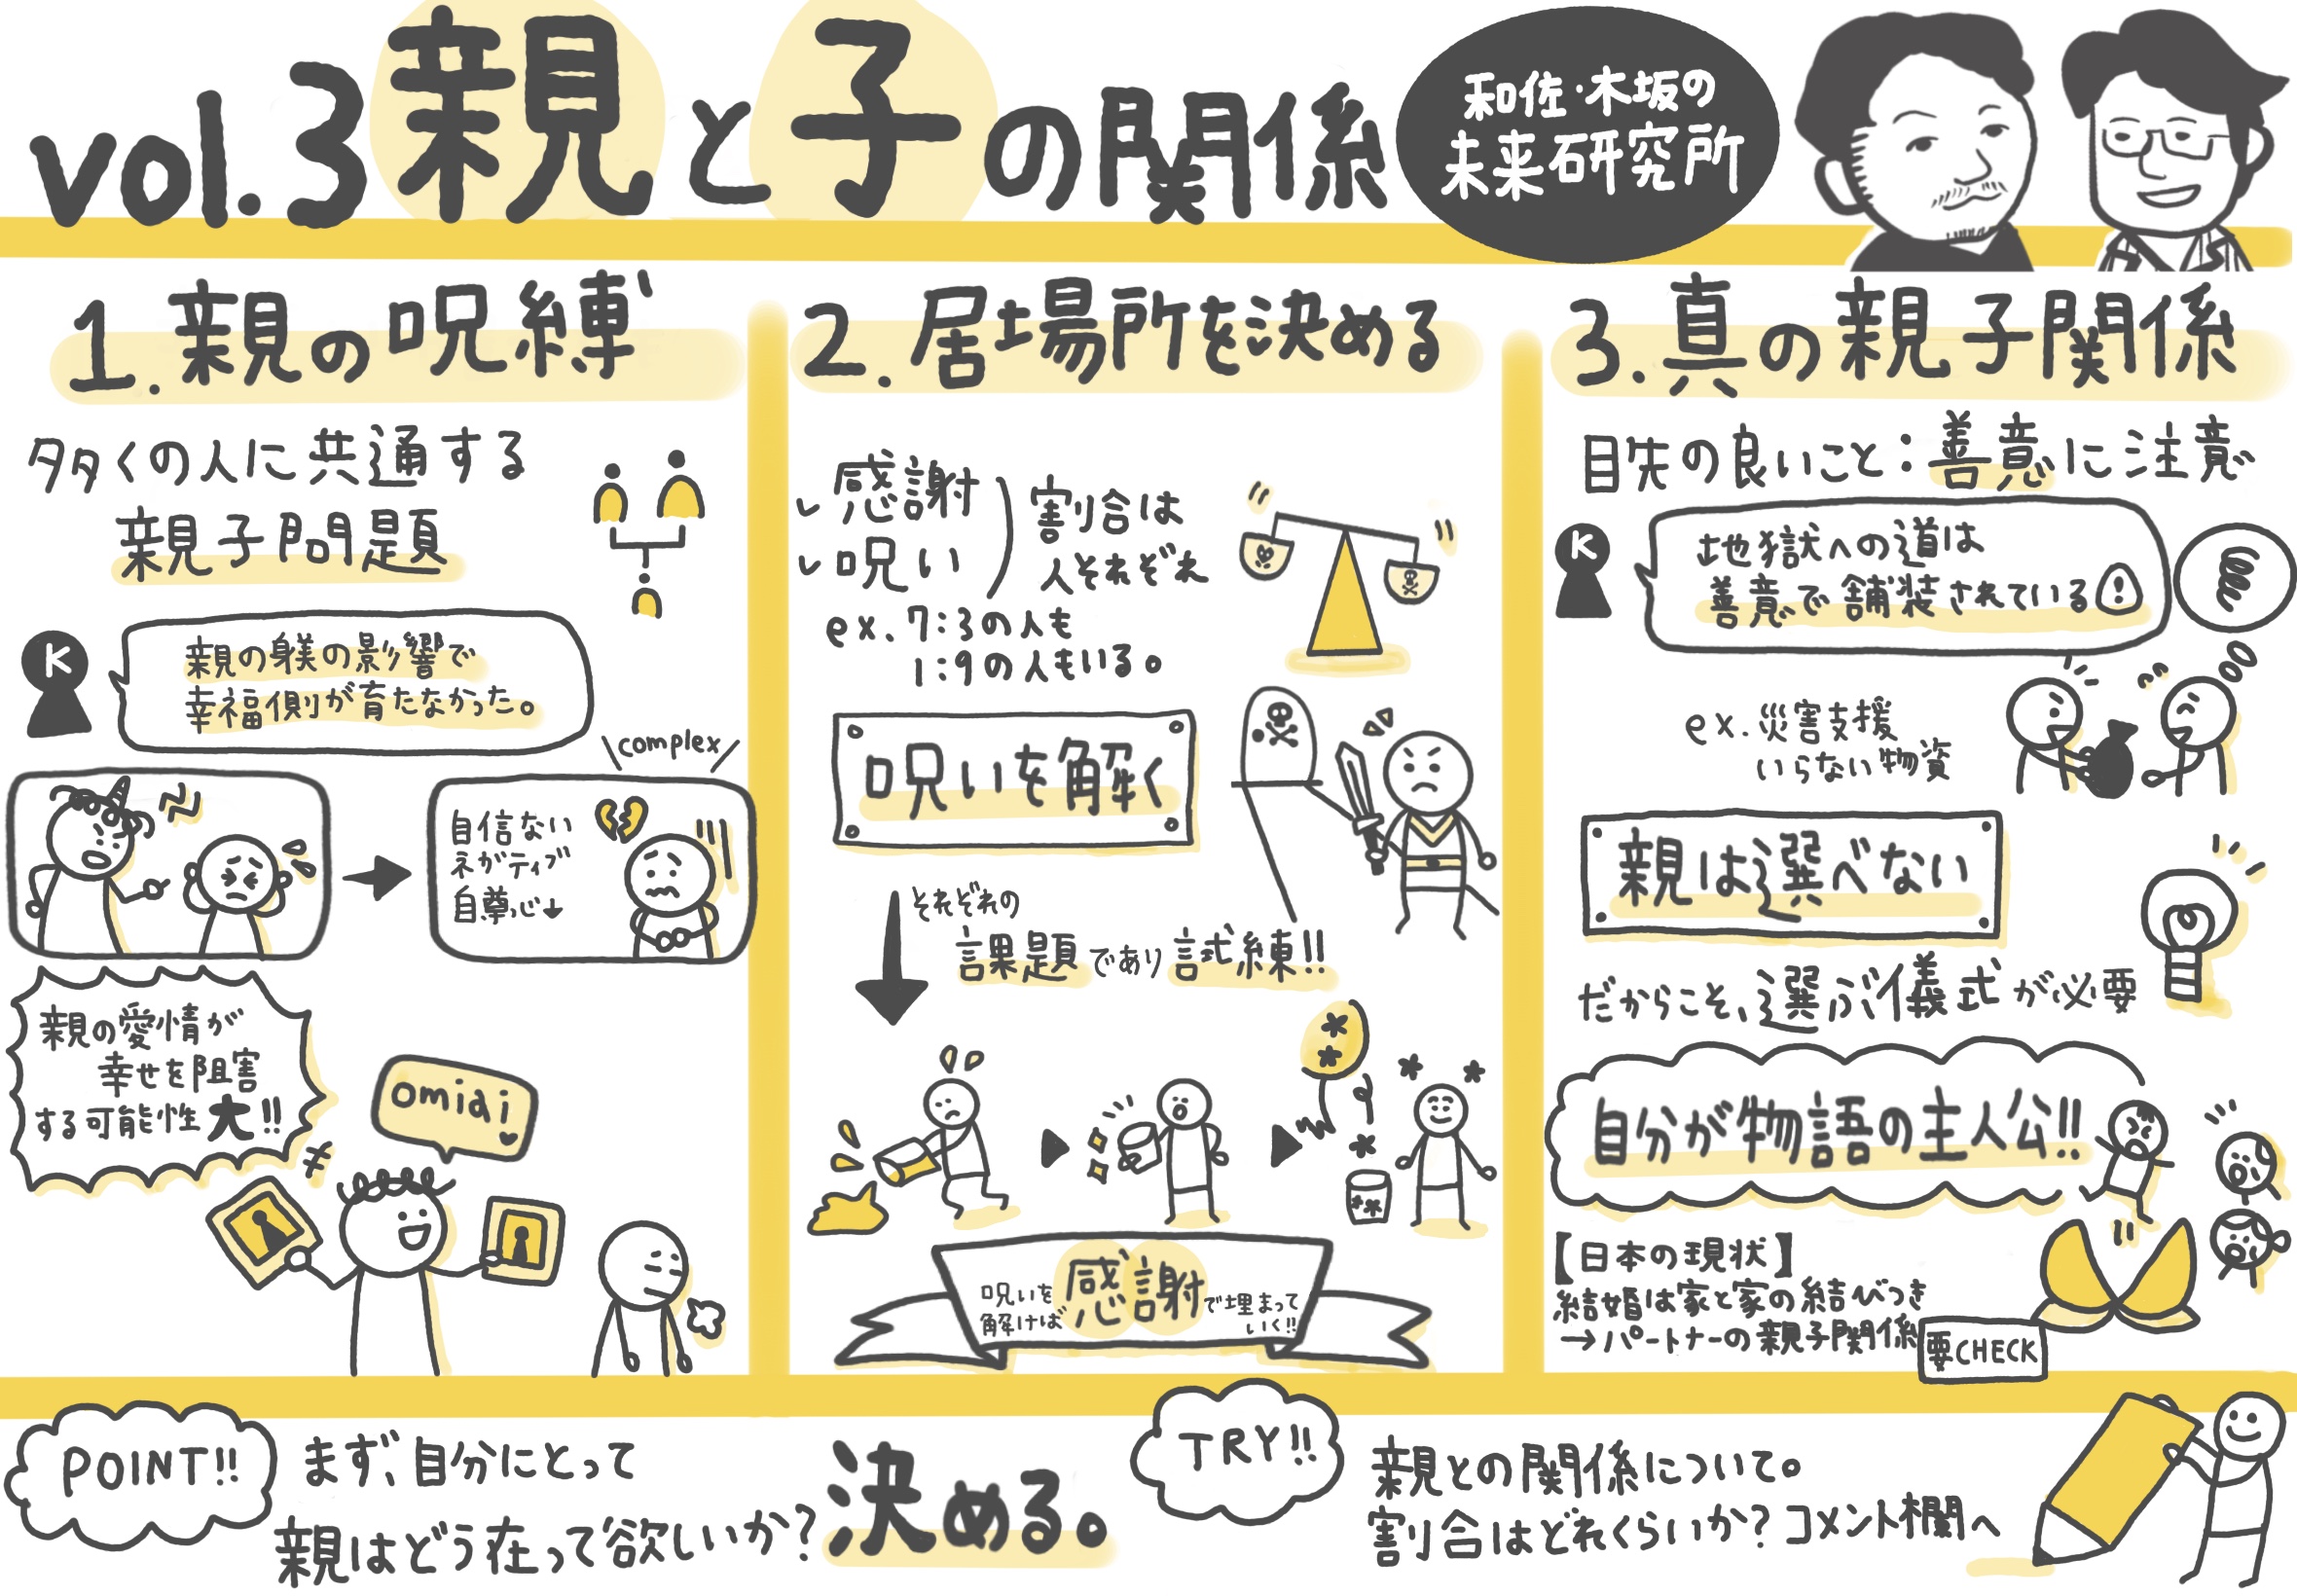 vol.3 親と子の関係
和佐・木坂の
未来研究所
1.親の呪縛
多くの人に共通する
親子問題
K
親の躾の影響で
幸福側が育たなかった。
\complex/
自信ない
ネガティブ
自尊心↓
親の愛情が
幸せを阻害
する可能性大!!
omiai
2.居場所を決める
✓感謝
✓呪い
割合は
人それぞれ
ex.7:3の人も
1:9の人もいる。
呪いを解く
それぞれの
課題であり試練!!
呪いを
解けば
感謝
で埋まって
いく!!
3.真の親子関係
目先の良いこと:善意に注意
K
地獄への道は
善意で舗装されている!
ex.災害支援
いらない物資
親は選べない
だからこそ、選ぶ儀式が必要
自分が物語の主人公!!
【日本の現状】
結婚は家と家の結びつき
→パートナーの親子関係
要CHECK
POINT!!
まず、自分にとって
親はどう在って欲しいか?決める。
TRY!!
親との関係について。
割合はどれくらいか?コメント欄へ